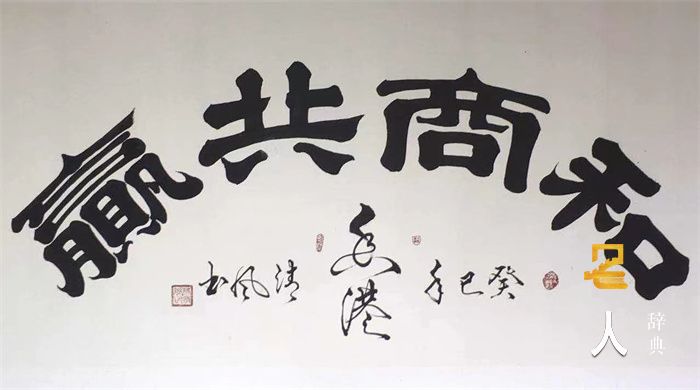 和商共贏
癸巳年
香港
清风书
名人
辞典